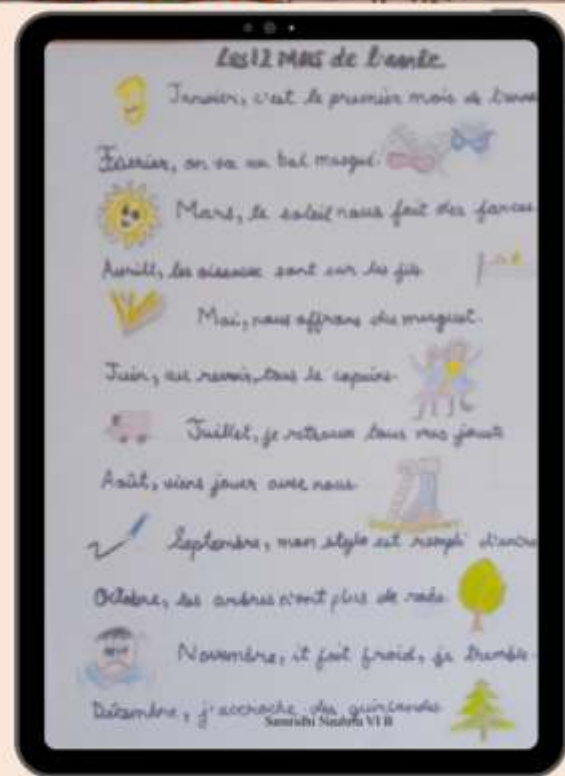 Les 12 Mois de l'année
Janvier, c'est le premier mois de l'anne
Février, on va au bal masqué.
Mars, le soleil nous fait des farces.
Avrill, les oiseaux sont sur les fils
Mai, nous offrons du muguet.
Juin, au revoir, tous le copains.
Juillet, je retrouve tous mes jouets
Août, viens jouer avec nous.
Septembre, mon stylo est rempli d'encre
Octobre, les arbres n'ont plus de
Novembre, it fait froid, je tremble.
Décembre, j'accroche des guirlandes
VI B